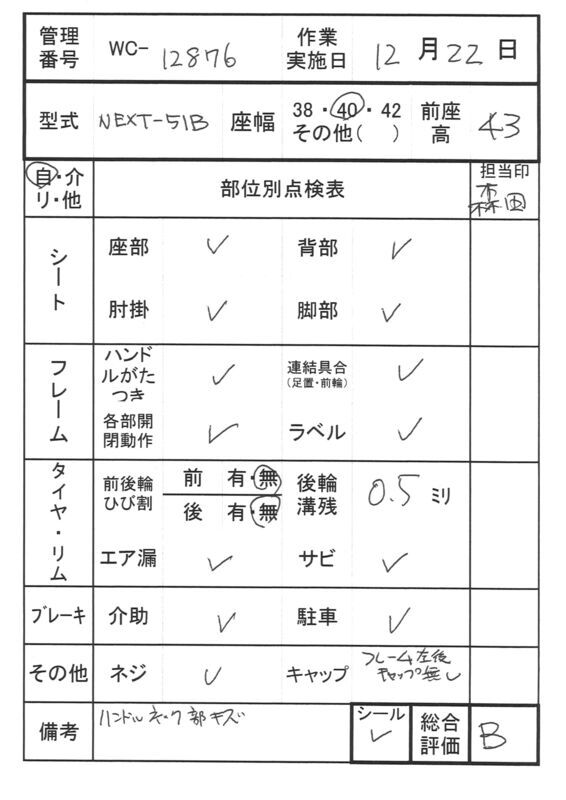 管理番号 WC- 12876 作業実施日 12月22日
型式 NEXT-51B 座幅 38・40・42 その他( ) 前座高 43
自・介リ・他 部位別点検表 担当印 森田
シート 座部 ✓ 背部 ✓
肘掛 ✓ 脚部 ✓
フレーム ハンドルがたつき ✓ 連結具合(足置・前輪) ✓
各部開閉動作 ✓ ラベル ✓
タイヤ・リム 前後輪ひび割 前 有・無 後 有・無 後輪溝残 0.5 ミリ
エア漏 ✓ サビ ✓
ブレーキ 介助 ✓ 駐車 ✓
その他 ネジ ✓ キャップ フレーム左後キャップ無し
備考 ハンドルネック部キズ シール ✓ 総合評価 B